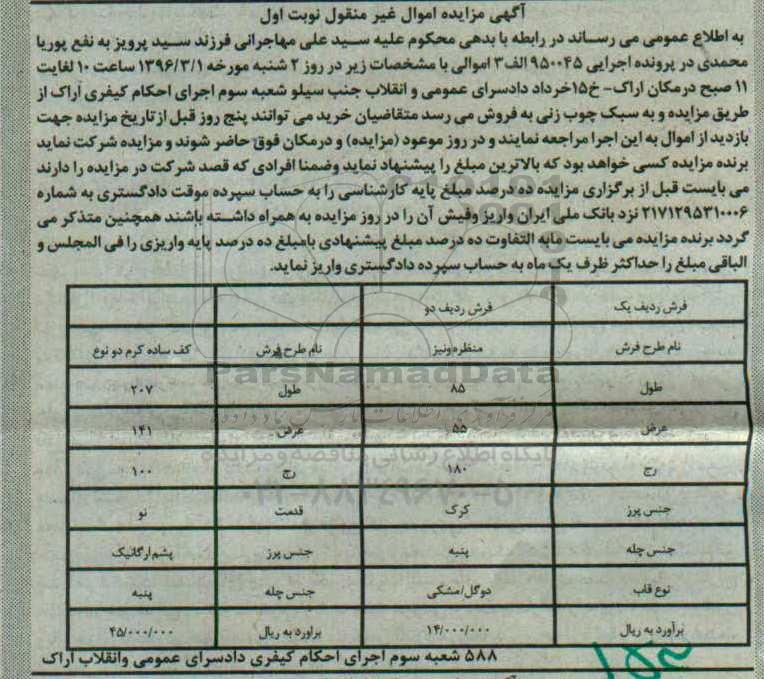 آگهی مزایده اموال غیر منقول نوبت اول
به اطلاع عمومی می رساند در رابطه با بدهی محکوم علیه سید علی مهاجرانی فرزند سید پرویز به نفع پوریا
محمدی در پرونده اجرایی ۹۵۰۰۴۵ الف۳ اموالی با مشخصات زیر در روز ۲ شنبه مورخه ۱۳۹۶/۳/۱ ساعت ۱۰ لغایت
۱۱ صبح درمکان اراک- خ۱۵خرداد دادسرای عمومی و انقلاب جنب سیلو شعبه سوم اجرای احکام کیفری اراک از
طریق مزایده و به سبک چوب زنی به فروش می رسد متقاضیان خرید می توانند پنج روز قبل ازتاریخ مزایده جهت
بازدید از اموال به این اجرا مراجعه نمایند و در روز موعود (مزایده) و درمکان فوق حاضر شوند و مزایده شرکت نماید
برنده مزایده کسی خواهد بود که بالاترین مبلغ را پیشنهاد نماید وضمنا افرادی که قصد شرکت در مزایده را دارند
می بایست قبل از برگزاری مزایده ده درصد مبلغ پایه کارشناسی را به حساب سپرده موقت دادگستری به شماره
۲۱۷۱۲۹۵۳۱۰۰۰۶ نزد بانک ملی ایران واریز وفیش آن را در روز مزایده به همراه داشته باشند همچنین متذکر می
گردد برنده مزایده می بایست مابه التفاوت ده درصد مبلغ پیشنهادی بامبلغ ده درصد پایه واریزی را فی المجلس و
الباقی مبلغ را حداکثر ظرف یک ماه به حساب سپرده دادگستری واریز نماید.
فرش ردیف یک فرش ردیف دو
نام طرح فرش منظره ونیز نام طرح فرش کف ساده کرم دو نوع
طول ۸۵ طول ۲۰۷
عرض ۵۵ عرض ۱۴۱
رج ۱۸۰ رج ۱۰۰
جنس پرز کرک قدمت نو
جنس چله پنبه جنس پرز پشم ارگانیک
نوع قاب دوگل/مشکی جنس چله پنبه
برآورد به ریال ۱۴/۰۰۰/۰۰۰ براورد به ریال ۴۵/۰۰۰/۰۰۰
۵۸۸ شعبه سوم اجرای احکام کیفری دادسرای عمومی وانقلاب اراک
ParsNamadData
پایگاه اطلاع رسانی مناقصه و مزایده
۰۲۱-۸۸۳۴۹۶۷۰-۵